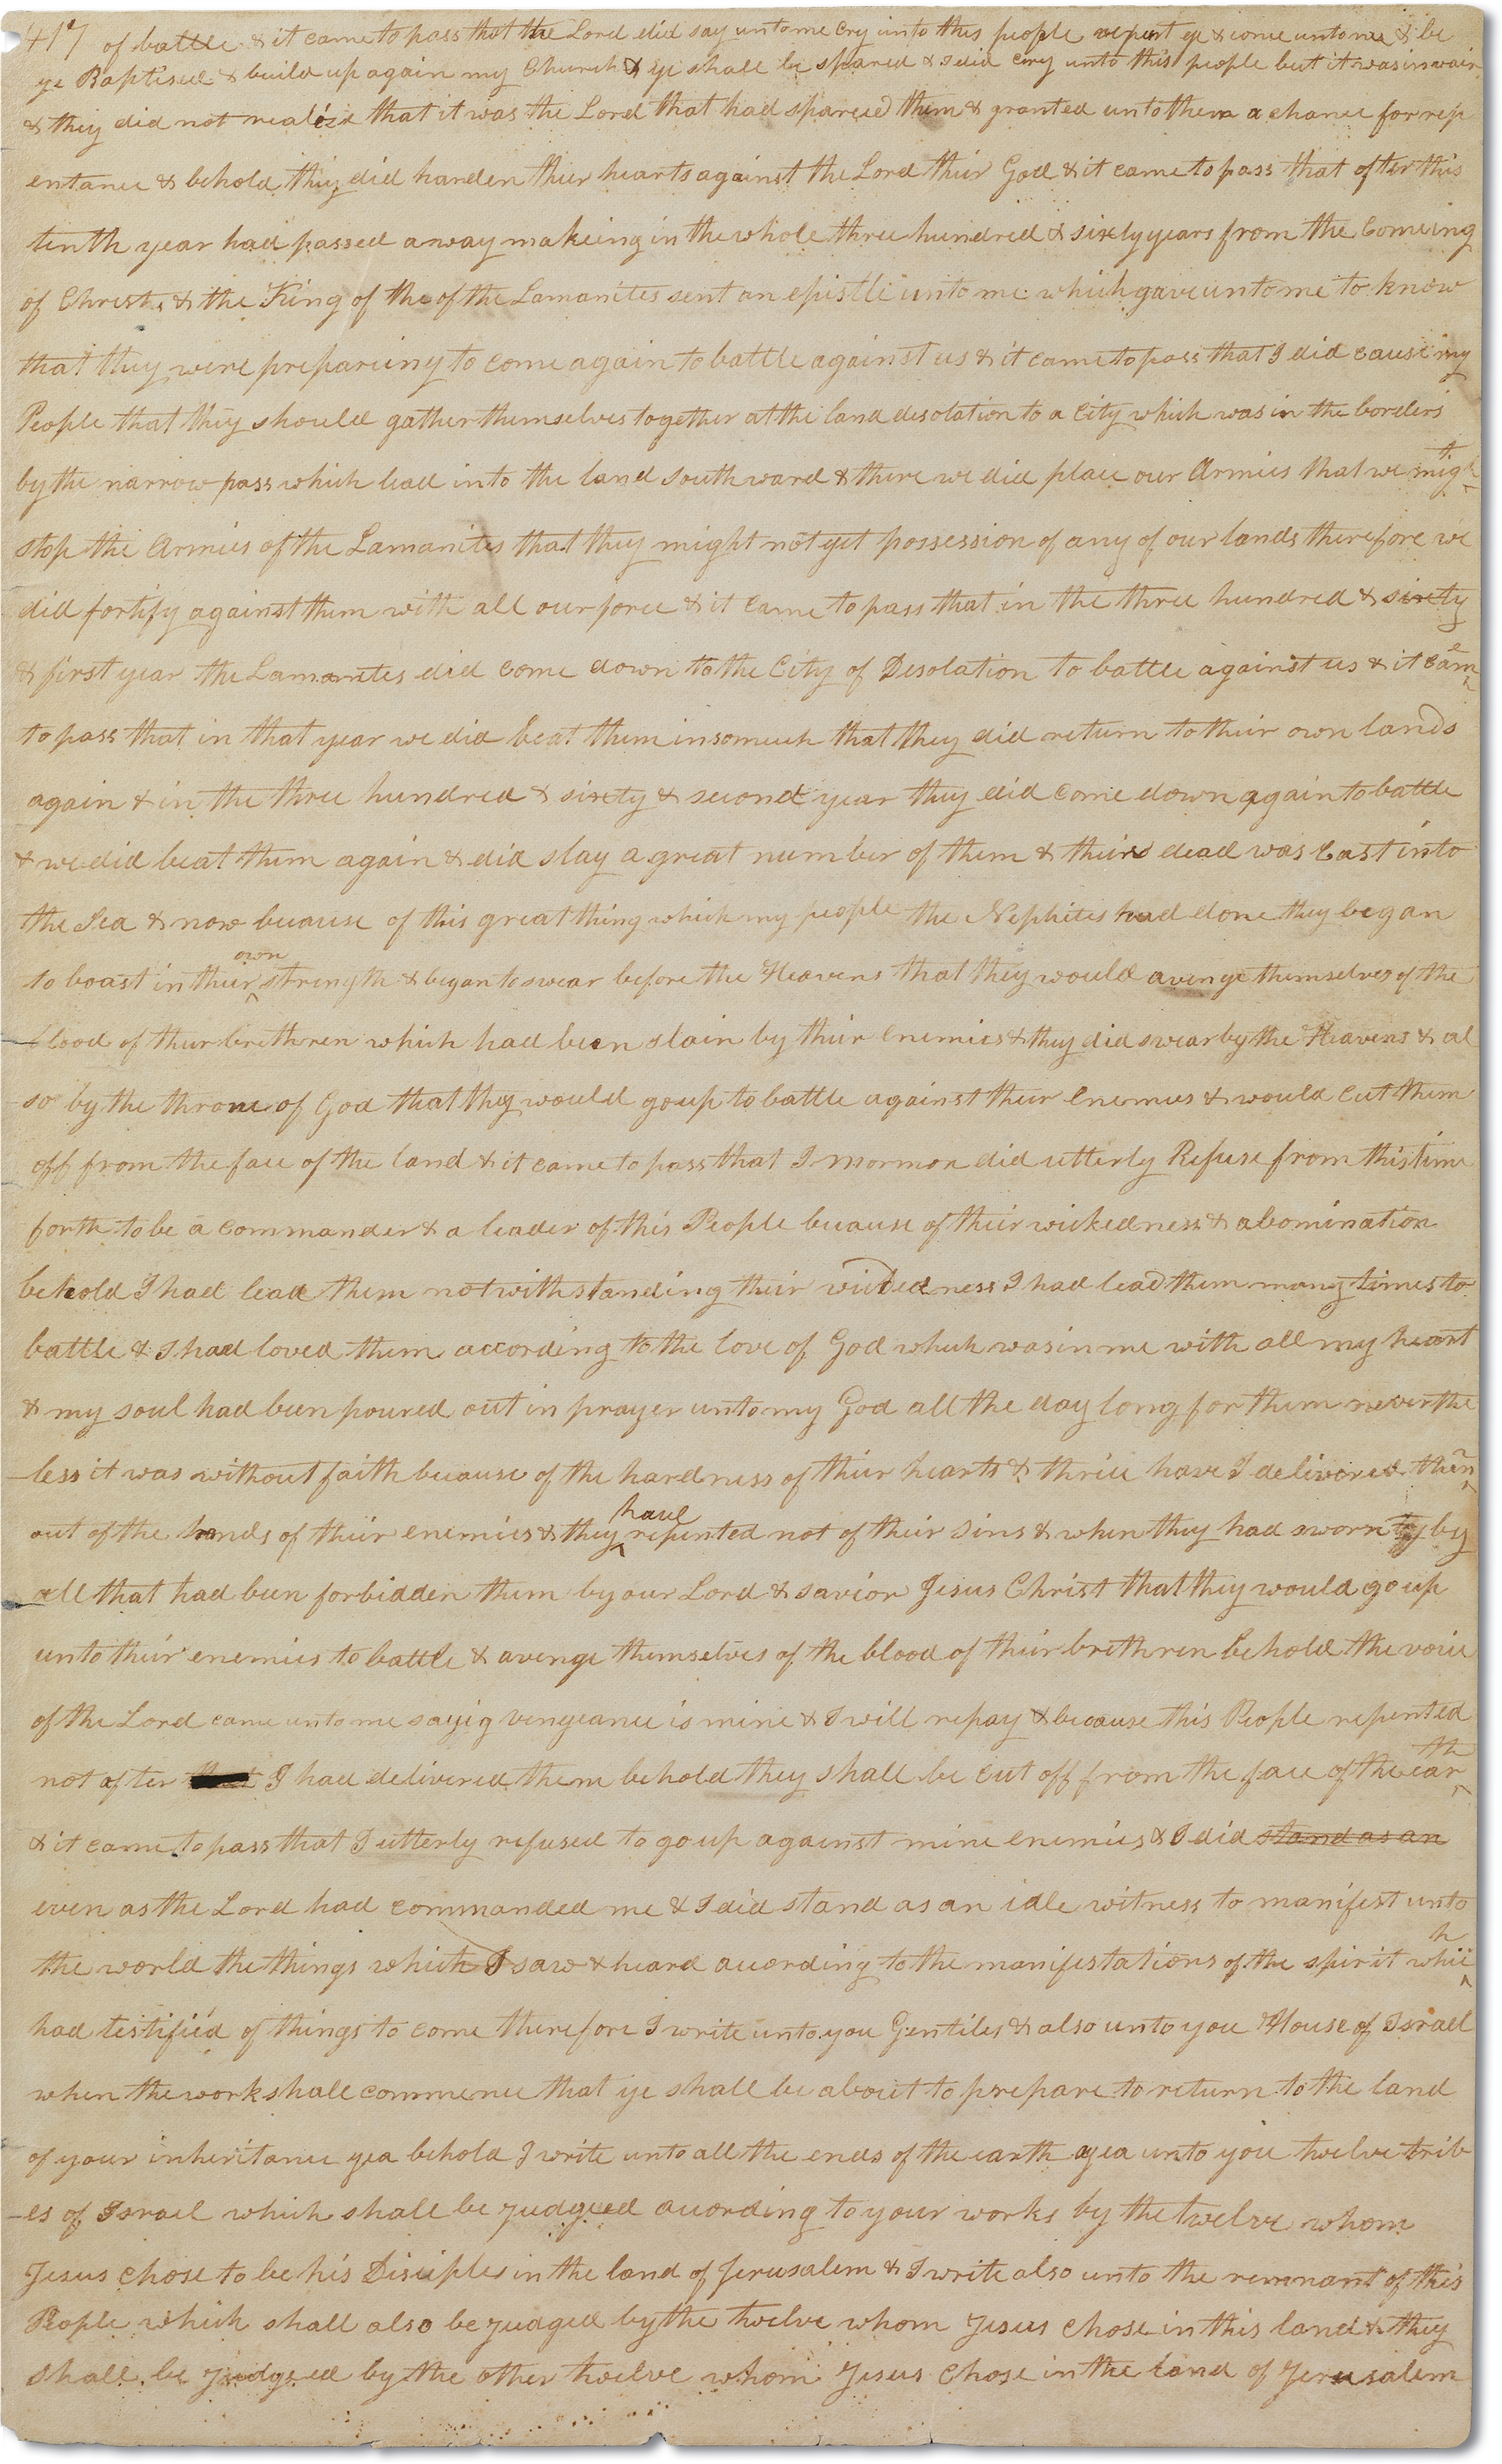 417 of battle & it came to pass that the Lord did say unto me cry unto this people repent ye & come unto me & be
ye Baptised & build up again my Church & ye shall be spared & I did cry unto this people but it was in vain
& they did not realize that it was the Lord that had spared them & granted unto them a chance for rep
entance & behold they did harden their hearts against the Lord their God & it came to pass that after this
tenth year had passed away makeing in the whole three hundred & sixty years from the comeing
of Christ & the King of the of the Lamanites sent an epistle unto me which gave unto me to know
that they were prepareing to come again to battle against us & it came to pass that I did cause my
People that they should gather themselves together at the land desolation to a City which was in the borders
by the narrow pass which lead into the land southward & there we did place our Armies that we might
stop the Armies of the Lamanites that they might not get possession of any of our lands therefore we
did fortify against them with all our force & it came to pass that in the three hundred & sixty
& first year the Lamanites did come down to the City of Desolation to battle against us & it came
to pass that in that year we did beat them insomuch that they did return to their own lands
again & in the three hundred & sixty & second year they did come down again to battle
& we did beat them again & did slay a great number of them & their dead was cast into
the Sea & now because of this great thing which my people the Nephites had done they began
to boast in their own strength & began to swear before the Heavens that they would avenge themselves of the
blood of their brethren which had been slain by their enemies & they did swear by the Heavens & al
so by the throne of God that they would go up to battle against their enemies & would cut them
off from the face of the land & it came to pass that I Mormon did utterly Refuse from this time
forth to be a commander & a leader of this People because of their wickedness & abomination
behold I had lead them notwithstanding their wickedness I had lead them many times to
battle & I had loved them according to the love of God which was in me with all my heart
& my soul had been poured out in prayer unto my God all the day long for them neverthe
-less it was without faith because of the hardness of their hearts & thrice have I delivered them
out of the hands of their enemies & they have repented not of their sins & when they had sworn by
all that had been forbidden them by our Lord & savior Jesus Christ that they would go up
unto their enemies to battle & avenge themselves of the blood of their brethren behold the voice
of the Lord came unto me sayig vengeance is mine & I will repay & because this People repented
not after I had delivered them behold they shall be cut off from the face of the earth
& it came to pass that I utterly refused to go up against mine enemies & I did stand as an
even as the Lord had commanded me & I did stand as an idle witness to manifest unto
the world the things which I saw & heard according to the manifestations of the spirit which
had testified of things to come therefore I write unto you Gentiles & also unto you House of Israel
when the work shall commence that ye shall be about to prepare to return to the land
of your inheritance yea behold I write unto all the ends of the earth yea unto you twelve trib
-es of Israel which shall be judged according to your works by the twelve whom
Jesus chose to be his Disciples in the land of Jerusalem & I write also unto the remnant of this
People which shall also be judged by the twelve whom Jesus chose in this land & they
shall be judged by the other twelve whom Jesus chose in the land of Jerusalem